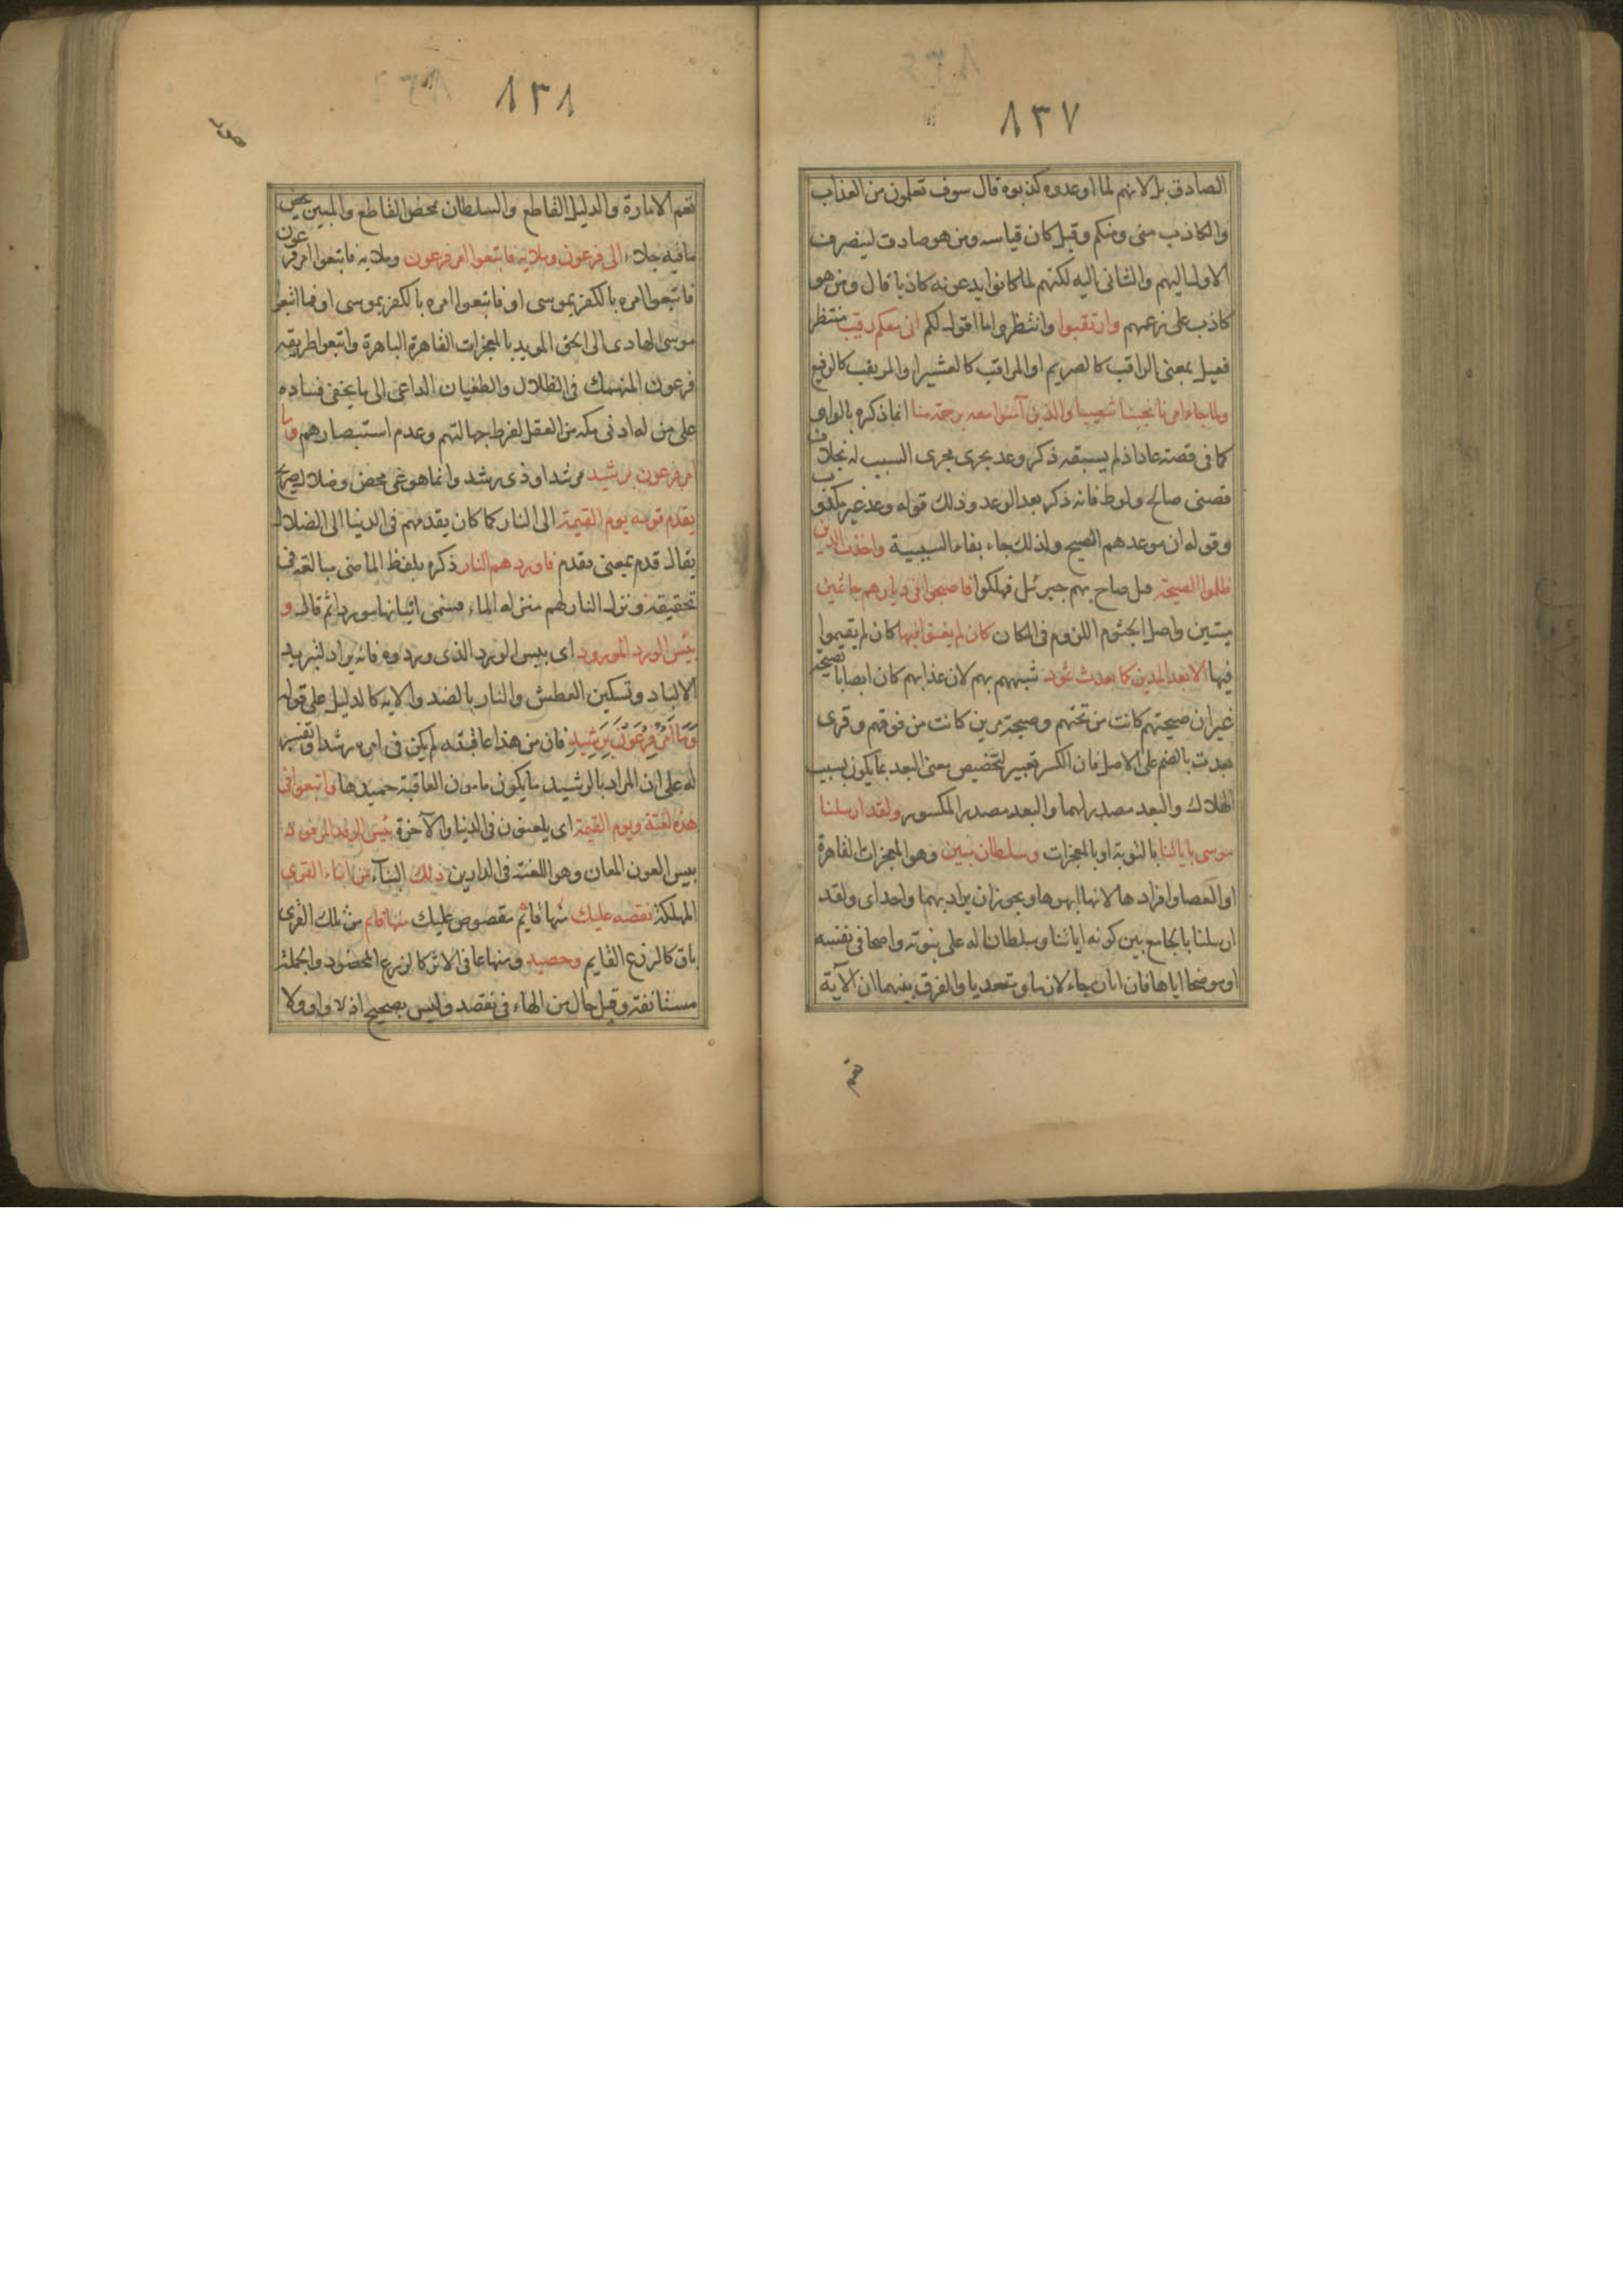 ٨٣٧
الصادق بل لانهم لما اوعدوه كذبوه قال سوف تعلمون من العذاب
والكاذب منى ومنكم وقيل كان قياسه ومن هو صادق لينصرف
الاول اليهم والثانى اليه لكنهم لما كانوا يدعونه كاذبا قال ومن هو
كاذب على زعمهم وارتقبوا وانتظروا ما اقول لكم انى معكم رقيب منتظر
فعيل بمعنى الراقب كالصريم او المراقب كالعشير او المرتقب كالرفيع
ولما جاء امرنا نجينا شعيبا والذين آمنوا معه برحمة منا انما ذكره بالواو
كما فى قصة عاد اذ لم يسبقه ذكر وعد يجرى مجرى السبب له بخلاف
قصتى صالح ولوط فانه ذكر بعد الوعد وذلك قوله وعد غير مكذوب
وقوله ان موعدهم الصبح ولذلك جاء بفاء السببية واخذت الذين
ظلموا الصيحة قيل صاح بهم جبرئيل فهلكوا فاصبحوا فى ديارهم جاثمين
ميتين واصل الجثوم اللزوم فى المكان كان لم يغنوا فيها كان لم يقيموا
فيها الا بعدا لمدين كما بعدت ثمود شبههم بهم لان عذابهم كان ايضا بالصيحة
غير ان صيحتهم كانت من تحتهم وصيحة مدين كانت من فوقهم وقرى
بعدت بالضم على الاصل فان الكسر تغيير لتخصيص معنى البعد بما يكون بسبب
الهلاك والبعد مصدر لهما والبعد مصدر المكسور ولقد ارسلنا
موسى باياتنا بالتورية او بالمعجزات وسلطان مبين وهو المعجزات القاهرة
او العصا وافرادها لانها ابهرها ويجوز ان يراد بهما واحد اى ولقد
ارسلنا بالجامع بين كونه اياتنا وسلطانا له على نبوته واضحا فى نفسه
او موضحا اياها فان ابان جاء لازما ومتعديا والفرق بينهما ان الآية
تعم
٨٣٨
تعم الامارة والدليل القاطع والسلطان يخص القاطع والمبين يخص
ما فيه جلاء الى فرعون وملائه فاتبعوا امر فرعون وملائه فاتبعوا امر فرعون
فاتبعوا امره بالكفر بموسى او فاتبعوا امره بالكفر بموسى او فما اتبعوا
موسى الهادى الى الحق المويد بالمعجزات القاهرة الباهرة واتبعوا طريقة
فرعون المنهمك فى الظلال والطغيان الداعى الى ما يخفى فساده
على من له ادنى مكه من العقل لفرط جهالتهم وعدم استبصارهم وما
امر فرعون برشيد مرشد او ذى رشد وانما هو غى محض وضلال صريح
يقدم قومه يوم القيمة الى النار كما كان يقدمهم فى الدنيا الى الضلال
يقال قدم بمعنى تقدم فاوردهم النار ذكره بلفظ الماضى مبالغة فى
تحقيقه ونزل النار لهم منزلة الماء فسمى اتيانها موردا ثم قال و
بئس الورد المورود اى بئس الورد الذى وردوه فانه يراد لتبريد
الاكباد وتسكين العطش والنار بالضد والاية كالدليل على قوله
وَمَا اَمْرُ فِرْعَوْنَ بِرَشِيدٍ فان من هذا عاقبته لم يكن فى امره رشدا وتفسير
له على ان المراد بالرشيد ما يكون مامون العاقبة حميدها واتبعوا فى
هذه لعنة ويوم القيمة اى يلعنون فى الدنيا والآخرة بئس الرفد المرفود
بيس العون المعان وهو اللعنة فى الدارين ذلك النبآء من انباء القرى
المهلكة نقصه عليك منها قائم مقصوص عليك منها قايم من تلك القرى
باق كالزرع القايم وحصيد ومنها عافى الاثر كالزرع المحصود والجملة
مستانفة وقيل حال من الهاء فى نقصه وليس بصحيح اذ لا واو ولا